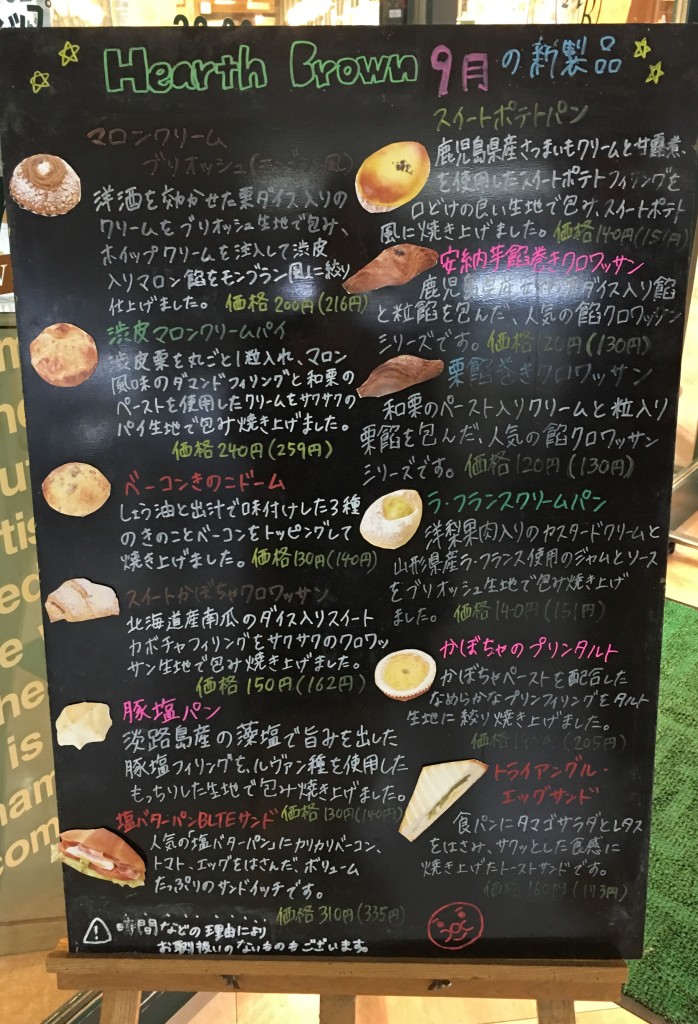 Hearth Brown 9月の新製品
マロンクリーム
ブリオッシュ
洋酒を効かせた栗ダイス入りの
クリームをブリオッシュ生地で包み、
ホイップクリームを注入して渋皮
入りマロン餡をモンブラン風に絞り
仕上げました。 価格200円(216円)
渋皮マロンクリームパイ
渋皮栗を丸ごと1粒入れ、マロン
風味のダマンドフィリングと和栗の
ペーストを使用したクリームをサクサクの
パイ生地で包み焼き上げました。
価格240円(259円)
ベーコンきのこドーム
しょう油と出汁で味付けした3種
のきのことベーコンをトッピングして
焼き上げました。 価格130円(140円)
スイートかぼちゃクロワッサン
北海道産南瓜のダイス入りスイート
カボチャフィリングをサクサクのクロワッ
サン生地で包み焼き上げました。
価格150円(162円)
豚塩パン
淡路島産の藻塩で旨みを出した
豚塩フィリングを、ルヴァン種を使用した
もっちりした生地で包み焼き上げました。
価格130円(140円)
塩バターパンBLTEサンド
人気の「塩バターパン」にカリカリベーコン、
トマト、エッグをはさんだ、ボリューム
たっぷりのサンドイッチです。
価格310円(335円)
時間などの理由により
お取扱いのないものもございます。
スイートポテトパン
鹿児島県産さつまいもクリームと甘露煮
を使用したスイートポテトフィリングを
口どけの良い生地で包み、スイートポテト
風に焼き上げました。 価格140円(151円)
安納芋餡巻きクロワッサン
鹿児島県産安納芋ダイス入り餡
と粒餡を包んだ、人気の餡クロワッサン
シリーズです。 価格120円(130円)
栗餡巻きクロワッサン
和栗のペースト入りクリームと粒入り
栗餡を包んだ、人気の餡クロワッサン
シリーズです。 価格120円(130円)
ラ・フランスクリームパン
洋梨果肉入りのカスタードクリームと
山形県産ラ・フランス使用のジャムとソース
をブリオッシュ生地で包み焼き上げ
ました。 価格140円(151円)
かぼちゃのプリンタルト
かぼちゃペーストを配合した
なめらかなプリンフィリングをタルト
生地に絞り焼き上げました。
価格 (205円)
トライアングル・
エッグサンド
食パンにタマゴサラダとレタス
をはさみ、サクッとした食感に
焼き上げたトーストサンドです。
価格160円(173円)